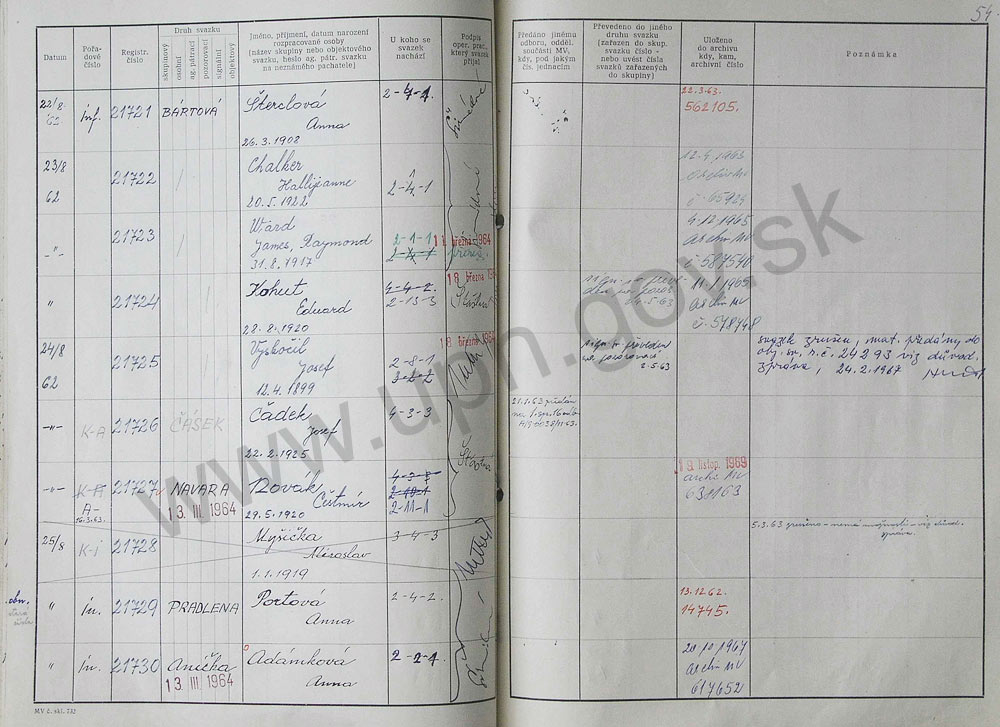 54
Datum
Pořa-
dové
číslo
Registr.
číslo
Druh svazku
skupinový
osobní
ag. pátrací
pozorovací
signální
objektový
Jméno, příjmení, datum narození
rozpracované osoby
(název skupiny nebo objektového
svazku, heslo ag. pátr. svazku
na neznámého pachatele)
U koho se
svazek
nachází
Podpis
oper. prac.,
který svazek
přijal
Předáno jinému
odboru, odděl.
součásti MV,
kdy, pod jakým
čís. jednacím
Převedeno do jiného
druhu svazku
(zařazen do skup.
svazku číslo -
nebo uvést čísla
svazků zařazených
do skupiny)
Uloženo
do archivu
kdy, kam,
archivní číslo
Poznámka
22/8
62
inf.
21721
BÁRTOVÁ
Šterclová
Anna
26.3.1908
2-4-1.
22.3.63.
562105.
23/8
62
21722
Chalker
20.5.1922
2-4-1
12.4.1963
21723
Ward
James, Raymond
31.8.1917
2-1-1
2-4-1
11. března 1964
4.12.1965
archiv MV
č. 587540
21724
Kohut
Eduard
28.8.1920
4-4-2.
2-13-3
18 března
24.5.63
11.1.1965
archiv MV
č. 578748
24/8
62
21725
Vyskočil
Josef
12.4.1899
2-8-1
18 března 1964
2.5.63
svazek zrušen, mat. předány do
obj. sv. r.č. 24293 viz důvod.
zpráva, 24.2.1967
K-A
21726
ČÁSEK
Čadek
Josef
22.2.1925
4-3-3
Šťastný
21.1.63 předán
K-A
A-
16.3.63.
21727
NAVARA
13. III. 1964
Novák
Čestmír
29.5.1920
2-10-1
2-11-1
19. listop. 1969
archiv MV
631163
25/8
K-i
21728
Myšička
Miroslav
1.1.1919
3-4-3
5.3.63 zrušeno - nemá možnosti - viz důvod.
zpráva.
obn.
in.
21729
PRADLENA
Portová
Anna
2-4-2.
13.12.62.
14745.
in.
21730
Anička
13. III. 1964
Adámková
Anna
2-2-1
20.10.1967
archiv MV
617652
MV č. skl. 732
www.upn.gov.sk